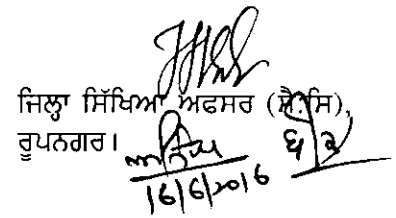 ਜਿਲ੍ਹਾ ਸਿੱਖਿਆ ਅਫਸਰ (ਸੈ:ਸਿ),
ਰੂਪਨਗਰ।
16/6/2016